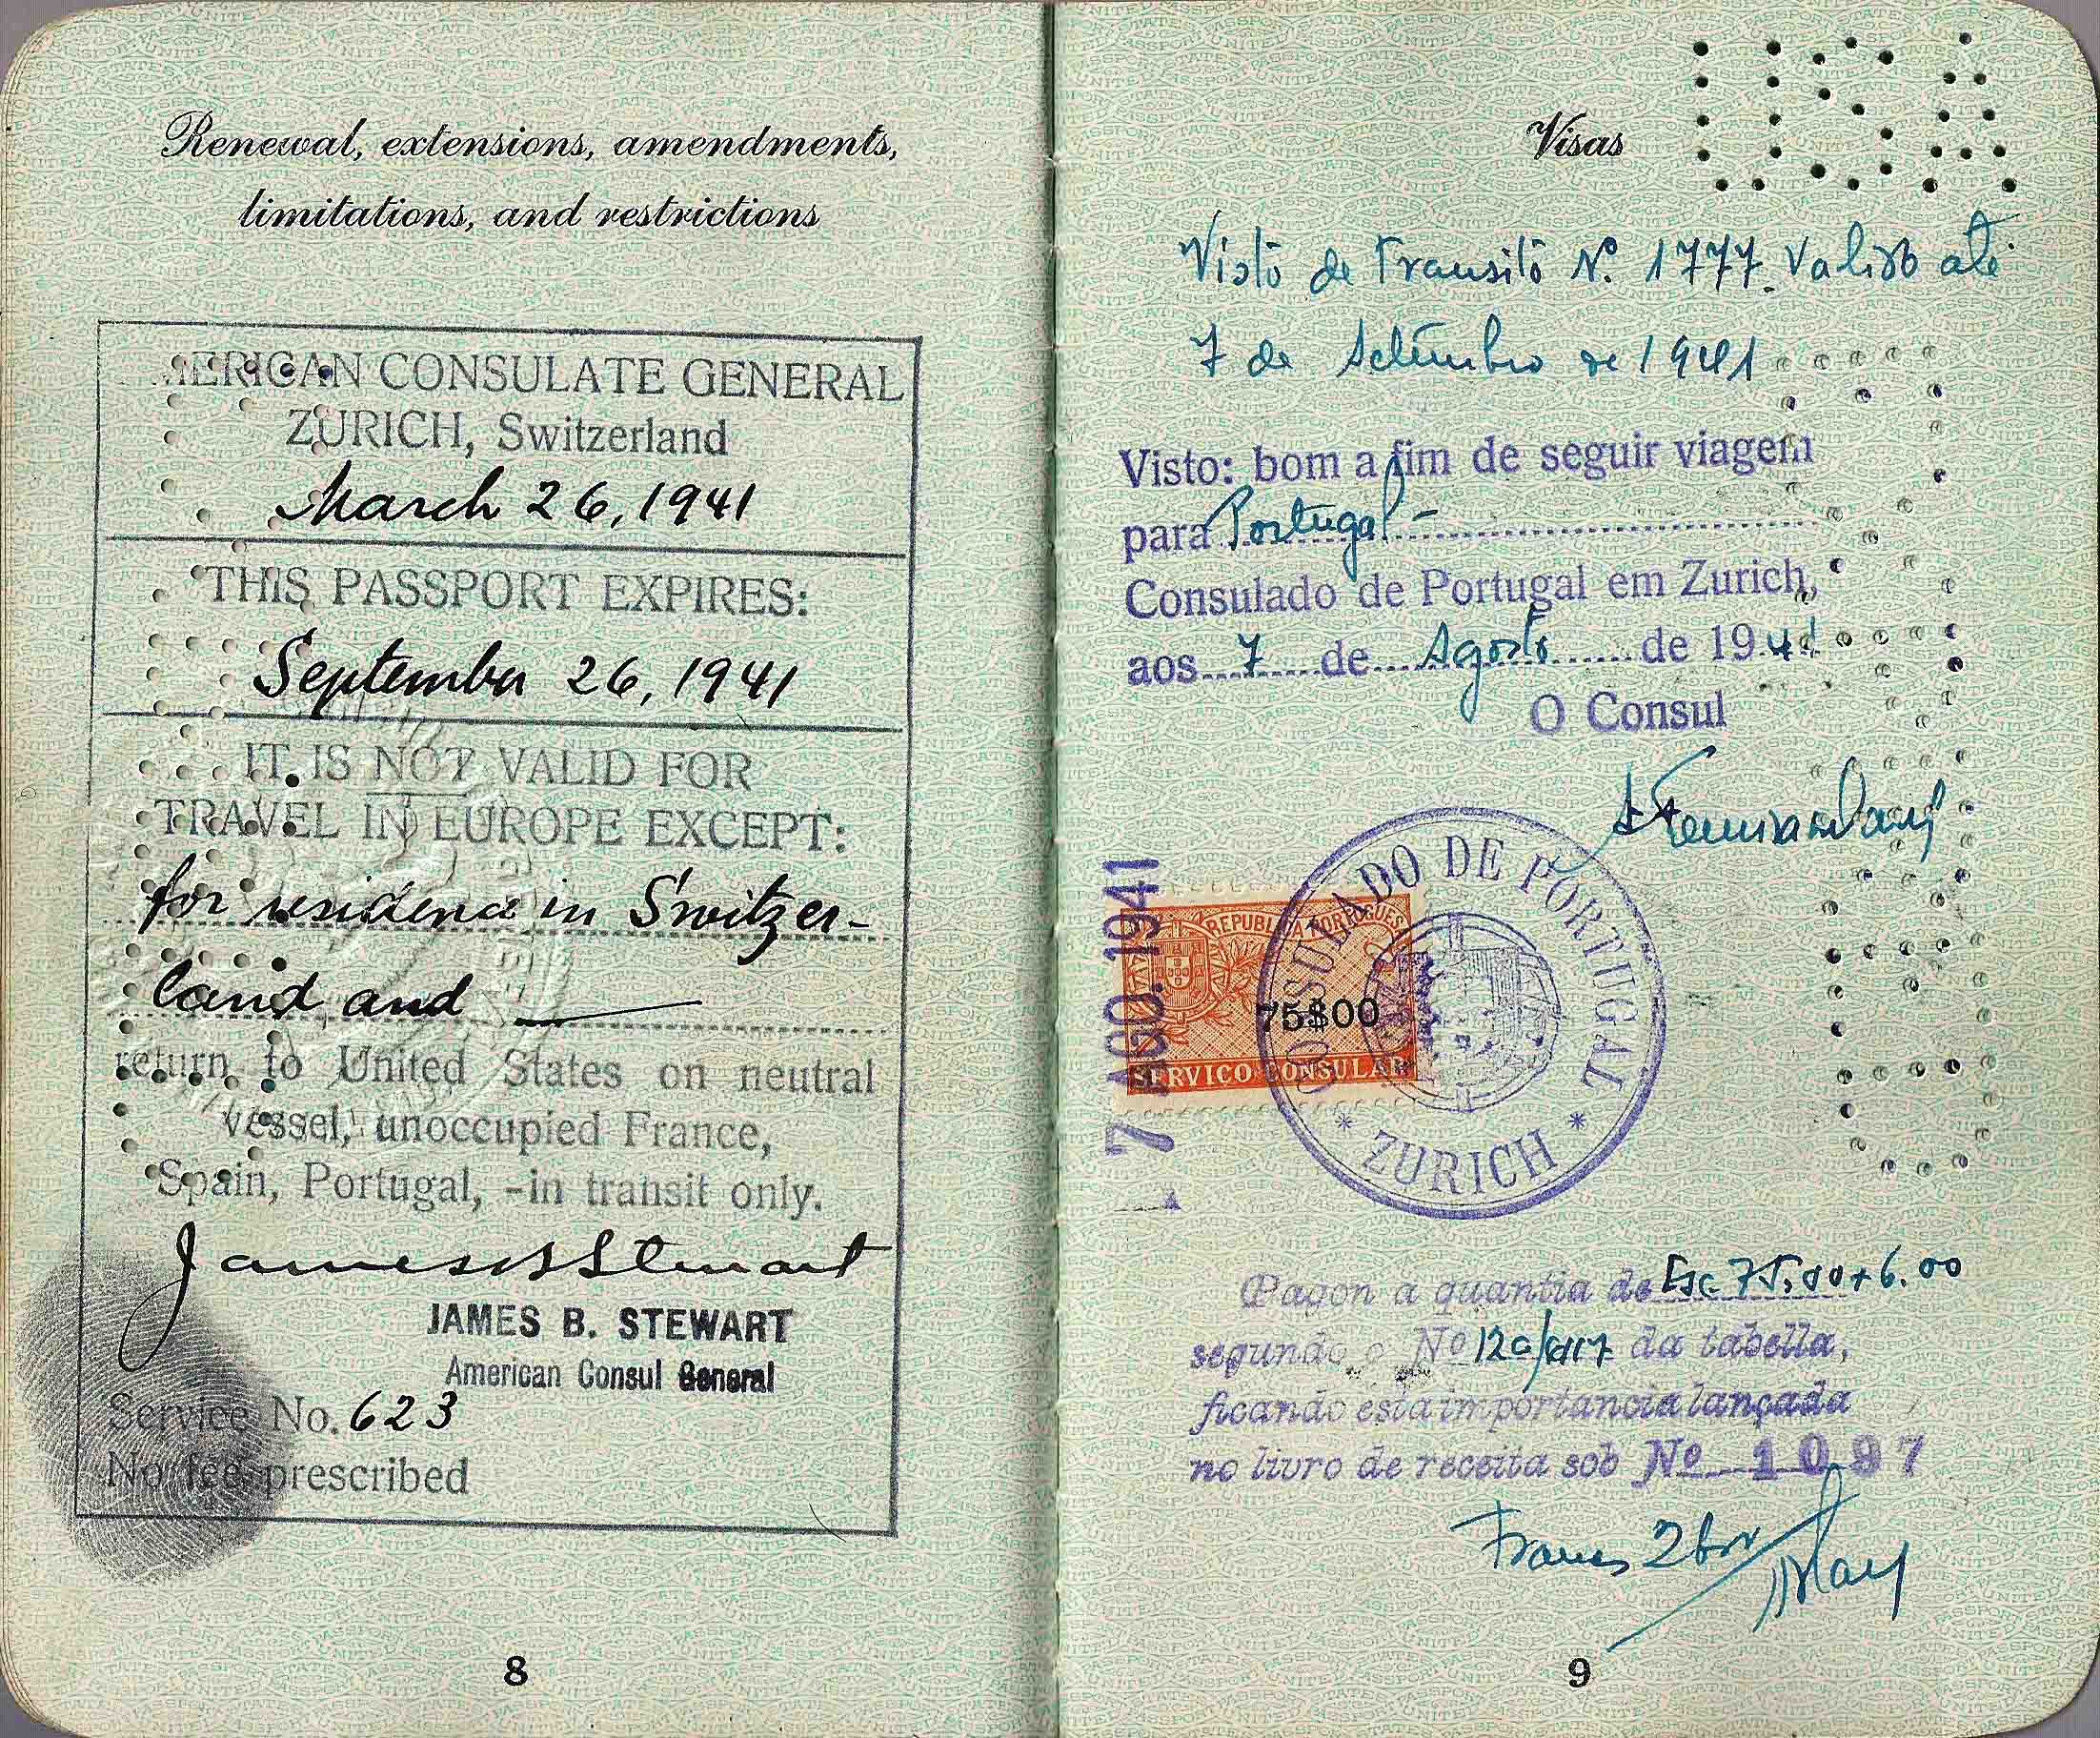 Renewal, extensions, amendments,
limitations, and restrictions
ERICAN CONSULATE GENERAL
ZURICH, Switzerland
March 26, 1941
THIS PASSPORT EXPIRES:
September 26, 1941
IT IS NOT VALID FOR
TRAVEL IN EUROPE EXCEPT:
for residence in Switzer-
land and
return to United States on neutral
vessel, unoccupied France,
Spain, Portugal, -in transit only.
James B Stewart
JAMES B. STEWART
American Consul General
Service No. 623
No fee prescribed
8
Visas
USA
Visto de Transito Nº. 1777. Valido até
7 de Setembro de 1941
Visto: bom a fim de seguir viagem
para Portugal -
Consulado de Portugal em Zurich,
aos 7 de Agosto de 1941
O Consul
7 AGO. 1941
REPUBLICA PORTUGUESA
75$00
SERVICO CONSULAR
CONSULADO DE PORTUGAL
* ZURICH *
Pagou a quantia de Esc. 75,00+6.00
segundo o Nº da tabella,
ficando esta importancia lançada
no livro de receita sob Nº 1097
Francs
9